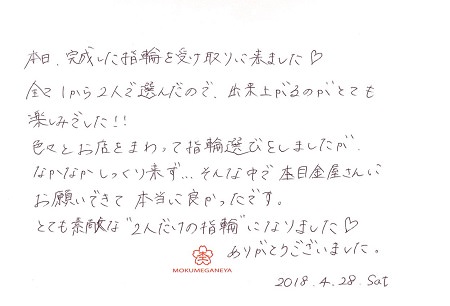 本日、完成した指輪を受け取りに来ました♡
全て1から2人で選んだので、出来上がるのがとても
楽しみでした!!
色々とお店をまわって指輪選びをしましたが、
なかなかしっくり来ず…そんな中で本目金屋さんに
お願いできて本当に良かったです。
とても素敵な"2人だけの指輪"になりました♡
ありがとうございました。
MOKUMEGANEYA
2018.4.28.Sat